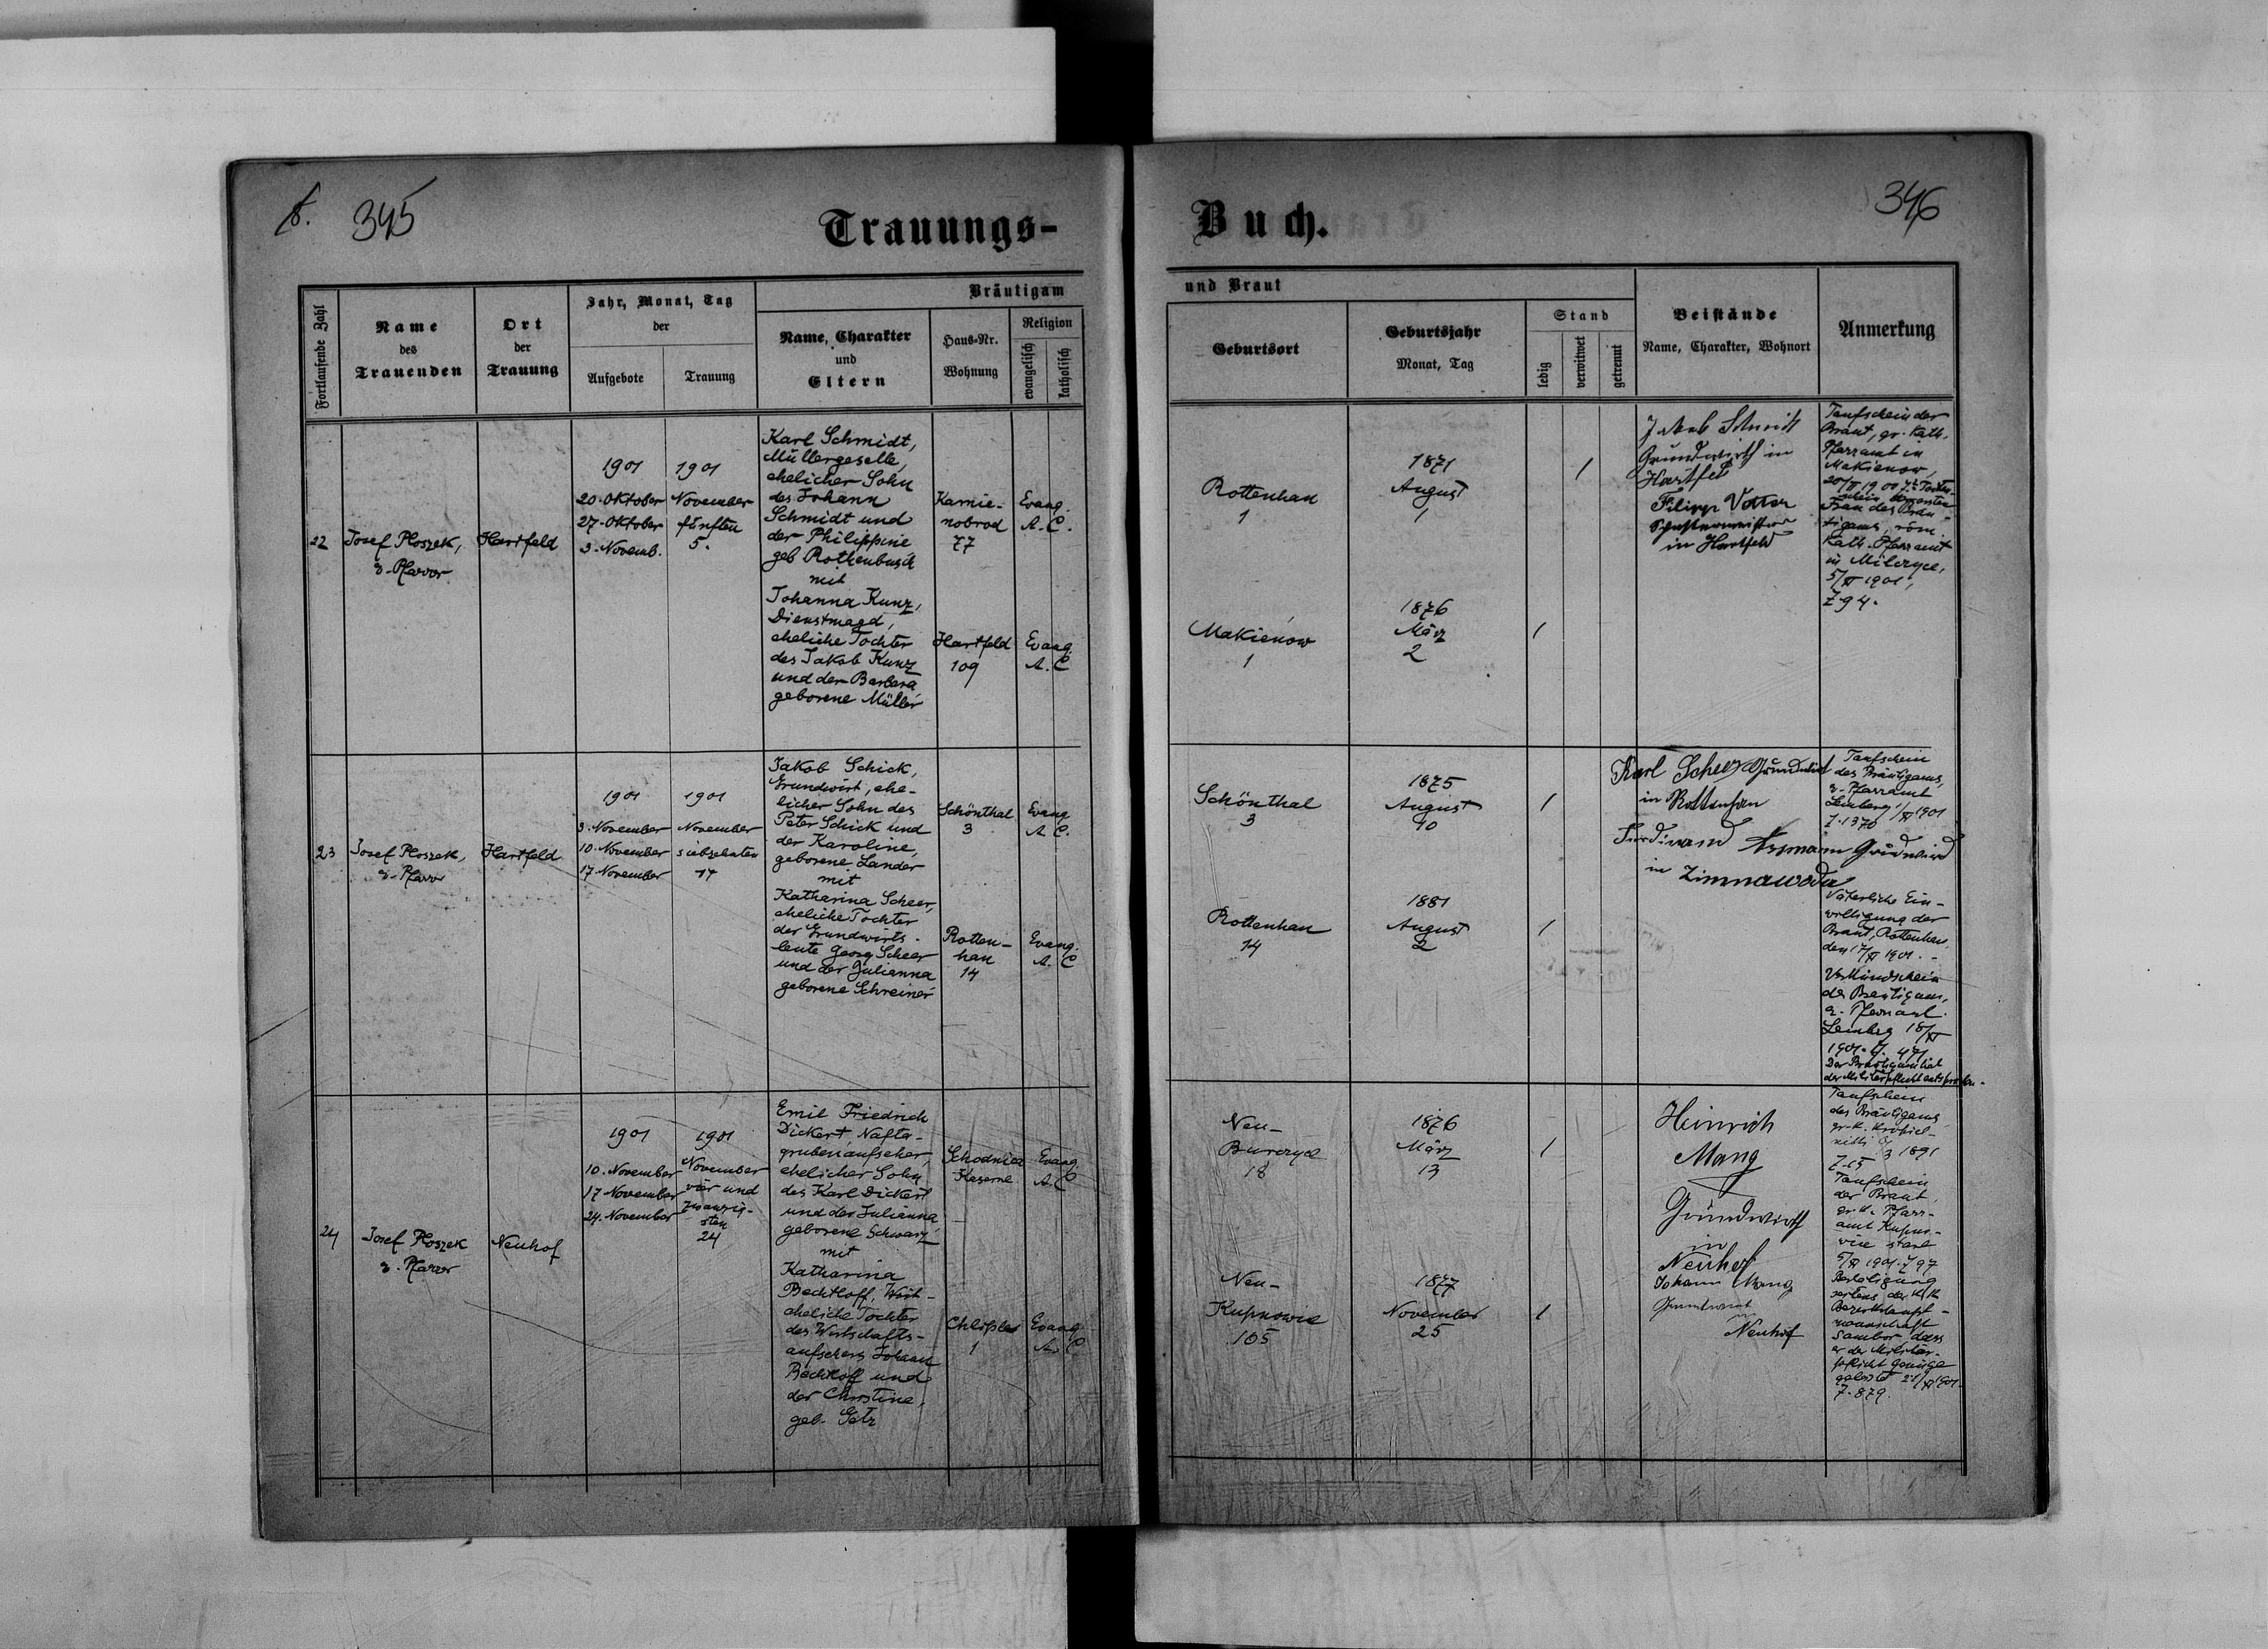 8. 345
Trauungs-
Buch.
346
Fortlaufende Zahl
Name
des
Trauenden
Ort
der
Trauung
Jahr, Monat, Tag
der
Aufgebote
Trauung
Bräutigam
Name, Charakter
und
Eltern
Haus-Nr.
Wohnung
Religion
evangelisch
katholisch
und Braut
Geburtsort
Geburtsjahr
Monat, Tag
Stand
ledig
verwitwet
getrennt
Beistände
Name, Charakter, Wohnort
Anmerkung
22
Josef Ploszek,
e. Pfarrer
Hartfeld
1901
20. Oktober
27. Oktober
3. Novemb.
1901
November
fünften
5.
Karl Schmidt,
Müllergeselle,
ehelicher Sohn
des Johann
Schmidt und
der Philippine
geb Rothenbusch
mit
Johanna Kunz,
Dienstmagd,
eheliche Tochter
des Jakob Kunz
und der Barbara
geborene Müller
Kamie-
nobrod
77
Evang.
A. C.
Hartfeld
109
Evang.
A. C
Rottenhan
1
1871
August
1
/
Makienow
1
1876
März
2
/
Jakob Schmidt
Grundwirth in
Hartfeld
Filipp Vetter
in Hartfeld
Taufschein der
Braut, gr. kath.
Pfarramt in
Makienow,
Frau des Bräu-
tigams, röm.
Kath. Pfarramt
in Milczyce,
5/XI 1901,
Z 94.
23
Josef Ploszek,
e. Pfarrer
Hartfeld
1901
3. November
10. November
17. November
1901
November
siebzehnten
17
Jakob Schick,
Grundwirt, ehe-
licher Sohn des
Peter Schick und
der Karoline,
geborene Lander
mit
Katharina Scheer,
eheliche Tochter
der Grundwirts-
leute Georg Scheer
und der Julianna
geborene Schreiner
Schönthal
3
Evang
A. C.
Rotten-
han
14
Evang.
A. C
Schönthal
3
1875
August
10
/
Rottenhan
14
1881
August
2
/
Karl Scheer Grundwirt
in Rottenhan
Ferdinand Assmann Grundwird
in Zimnawoda
Taufschein
des Bräutigams,
e. Pfarramt
Lemberg 1/XI 1901
Z. 1370
Väterliche Ein-
willigung der
Braut, Rottenhan
den 17/XI 1901. -
Verkündschein
des Bräutigams,
e. Pfarramt
Lemberg 18/XI
1901. Z. 471
Der Bräutigam hat
der Militärpflicht entsprochen.
24
Josef Ploszek
e. Pfarrer
Neuhof
1901
10. November
17 November
24. November
1901
November
vier und
zwanzig-
sten
24
Emil Friedrich
Dickert, Nafta-
grubenaufseher,
ehelicher Sohn
des Karl Dickert
und der Julianna,
geborene Schwarz
mit
Katharina
Bechtloff,
eheliche Tochter
des Wirtschafts-
aufsehers Johann
Bechtloff und
der Christine,
geb. Getz
Schodnica
Kaserne
Evang.
A. C
1
Evang.
A. C
Neu-
Burczyce
18
1876
März
13
/
Neu-
Kupnowice
105
1877
November
25
/
Heinrich
Mang
Grundwirth
in
Neuhof
Johann Mang
Grundwirth
in
Neuhof
Taufschein
des Bräutigams
1891
Z. 15
Taufschein
der Braut,
gr. k. Pfarr-
amt Kupno-
wice stare
5/XI 1901. Z 97
Bestätigung
seitens der k/k
Bezirkshaupt-
mannschaft
Sambor, dass
er der Militär-
pflicht Genüge
geleistet 21/XI 1901.
Z. 879.